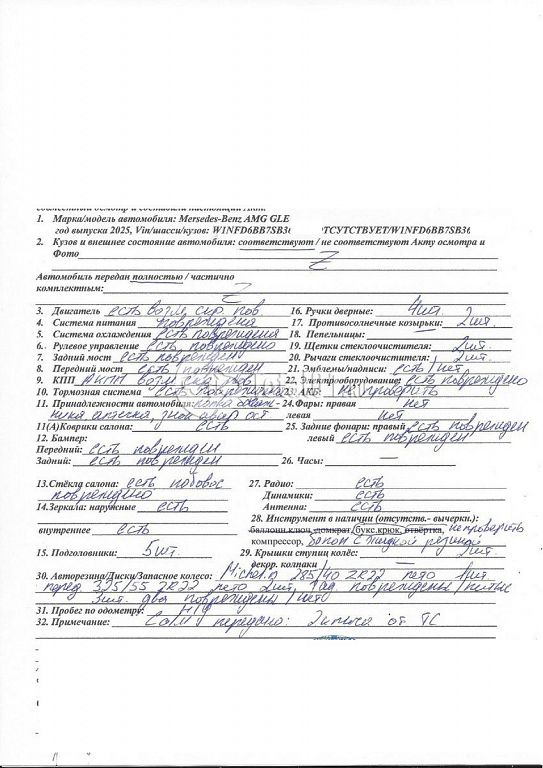 совместный осмотр и составили настоящий Акт.
1. Марка/модель автомобиля: Mersedes-Benz AMG GLE
год выпуска 2025, Vin/шасси/кузов: W1NFD6BB7SB3 ТСУТСТВУЕТ/W1NFD6BB7SB3
2. Кузов и внешнее состояние автомобиля: соответствуют / не соответствуют Акту осмотра и
Фото Z
Автомобиль передан полностью / частично
комплектным: Z
3. Двигатель есть возм. скр. пов 16. Ручки дверные: 4шт.
4. Система питания повреждена 17. Противосолнечные козырьки: 2шт
5. Система охлаждения есть повреждения 18. Пепельницы:
6. Рулевое управление есть повреждено 19. Щетки стеклоочистителя: 2шт
7. Задний мост есть поврежден 20. Рычаги стеклоочистителя: 2шт.
8. Передний мост есть поврежден 21. Эмблемы/надписи: есть/нет
9. КПП АКПП возм. скр. пов 22. Электрооборудование: есть повреждено
10. Тормозная система есть повреждена 23. АКБ: не проверить
11. Принадлежности автомобиля: 24.Фары: правая нет
аптечка, знак авар ост левая нет
11(А)Коврики салона: есть 25. Задние фонари: правый есть поврежден
12. Бампер: левый есть поврежден
Передний: есть поврежден
Задний: есть поврежден 26. Часы: —
13.Стёкла салона: есть лобовое 27. Радио: есть
повреждено Динамики: есть
14.Зеркала: наружные есть Антенна: есть
28. Инструмент в наличии (отсутств.- вычерки.):
внутреннее есть баллонн.ключ, домкрат, букс.крюк, отвёртка, не проверить
компрессор, балон с жидкой резиной
15. Подголовники: 5шт. 29. Крышки ступиц колёс: 2шт.
декор. колпаки —
30. Авторезина/Диски/Запасное колесо: Michelin 285/40 ZR22 лето 1шт.
перед 325/55 ZR22 лето 2шт. зад. повреждены/литые
3шт. два повреждены/нет
31. Пробег по одометру: Н/У
32. Примечание: передано: 2 ключа от ТС